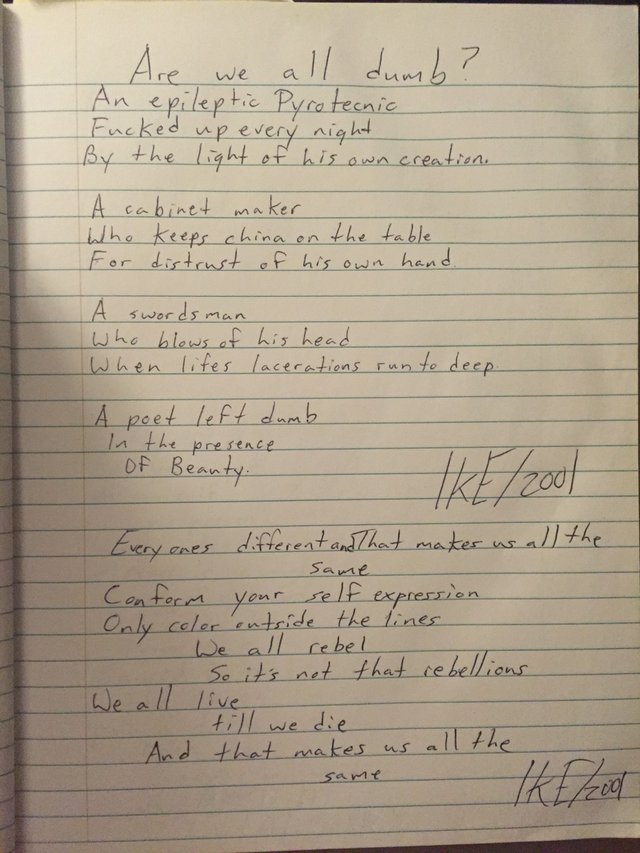 Are we all dumb?
An epileptic Pyrotecnic
Fucked up every night
By the light of his own creation.
A cabinet maker
Who keeps china on the table
For distrust of his own hand.
A swordsman
Who blows of his head
When lifes lacerations run to deep.
A poet left dumb
In the presence
Of Beauty.
IKE/2001
Every ones different and That makes us all the
same
Conform your self expression
Only color outside the lines
We all rebel
So it's not that rebellions
We all live
till we die
And that makes us all the
same
IKE/2001